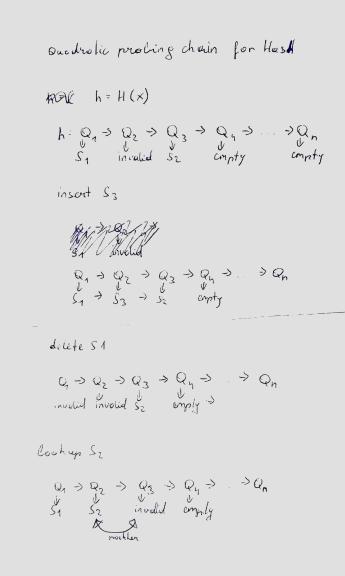 Quadratic probing chain for Hash
h = H(x)
h: Q1 → Q2 → Q3 → Q4 → ... → Qn
↓ ↓ ↓ ↓ ↓
S1 invalid S2 empty empty
insert S3
S1 invalid
Q1 → Q2 → Q3 → Q4 → ... → Qn
↓ ↓ ↓ ↓
S1 → S3 → S2 empty
dilete S1
Q1 → Q2 → Q3 → Q4 → ... → Qn
invalid invalid S2 empty →
Lookup S2
Q1 → Q2 → Q3 → Q4 → ... → Qn
↓ ↓ ↓ ↓
S1 S2 invalid empty